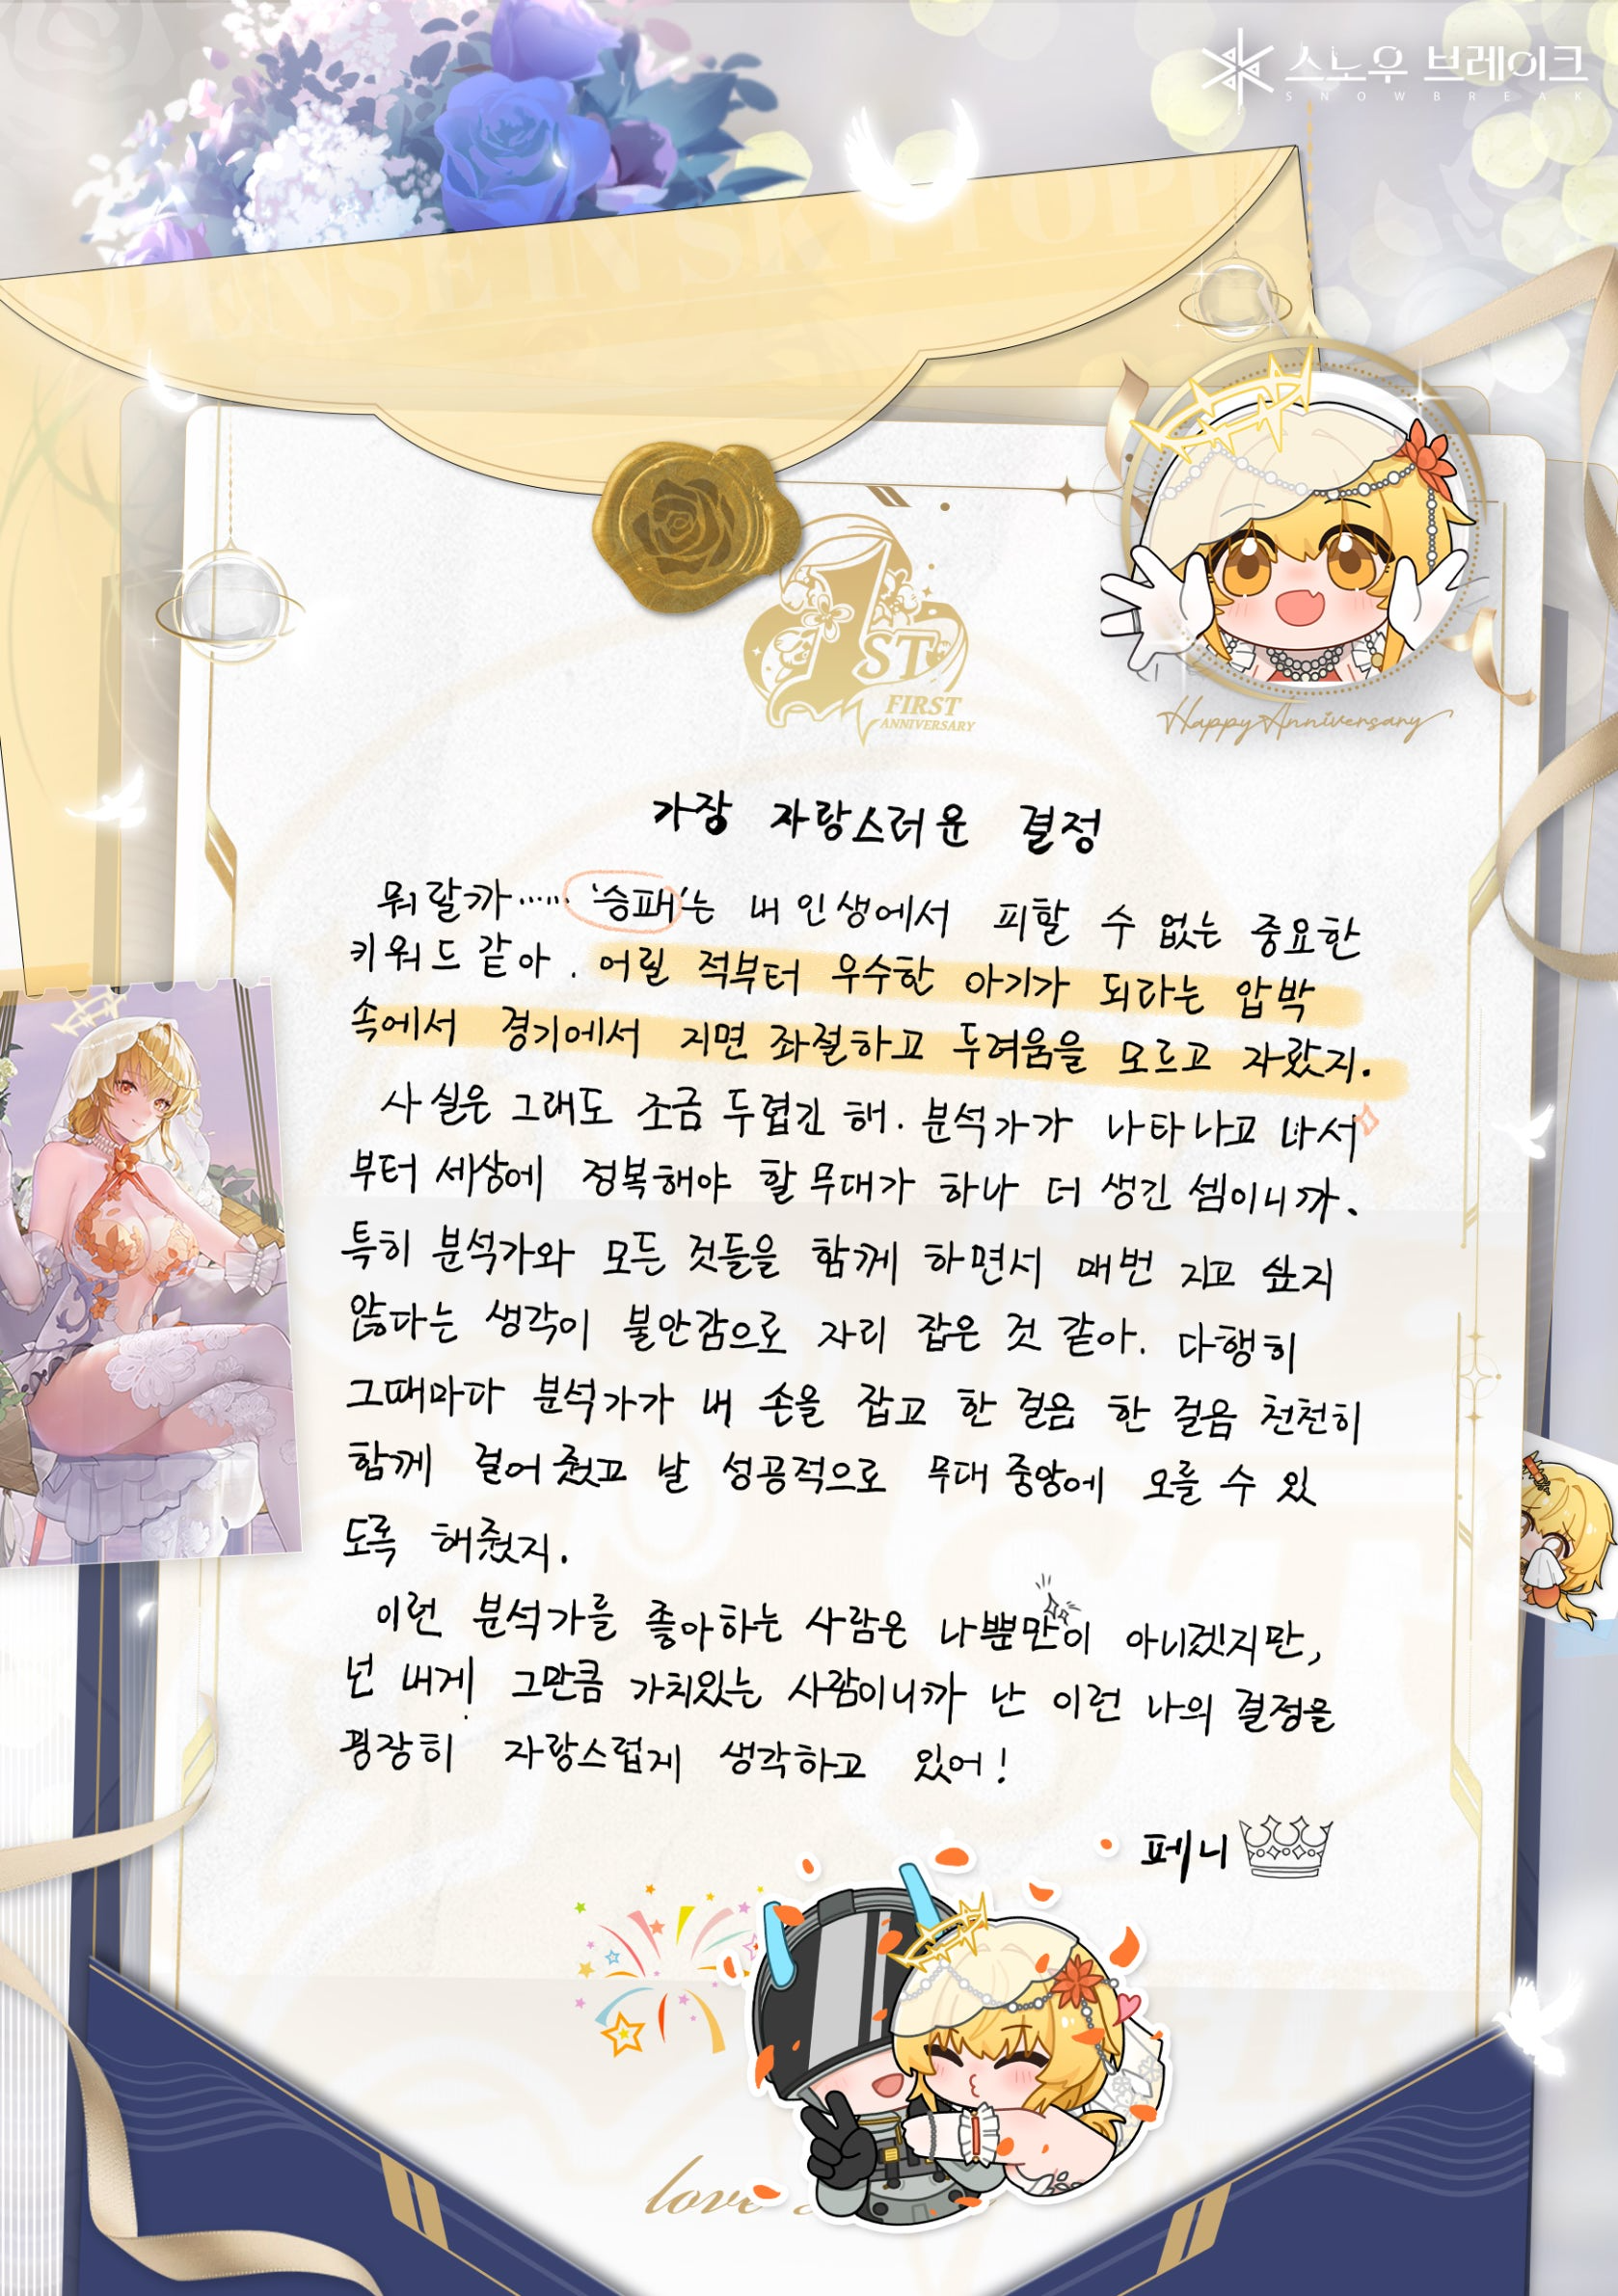 스노우 브레이크
SNOWBREAK
1ST
FIRST
ANNIVERSARY
Happy Anniversary
가장 자랑스러운 결정
뭐랄까…… '승패'는 내 인생에서 피할 수 없는 중요한
키워드 같아. 어릴 적부터 우수한 아기가 되라는 압박
속에서 경기에서 지면 좌절하고 두려움을 모르고 자랐지.
사실은 그래도 조금 두렵긴 해. 분석가가 나타나고 나서
부터 세상에 정복해야 할 무대가 하나 더 생긴 셈이니까.
특히 분석가와 모든 것들을 함께 하면서 매번 지고 싶지
않다는 생각이 불안감으로 자리 잡은 것 같아. 다행히
그때마다 분석가가 내 손을 잡고 한 걸음 한 걸음 천천히
함께 걸어줬고 날 성공적으로 무대 중앙에 오를 수 있
도록 해줬지.
이런 분석가를 좋아하는 사람은 나뿐만이 아니겠지만,
넌 내게 그만큼 가치있는 사람이니까 난 이런 나의 결정을
굉장히 자랑스럽게 생각하고 있어!
페니
love